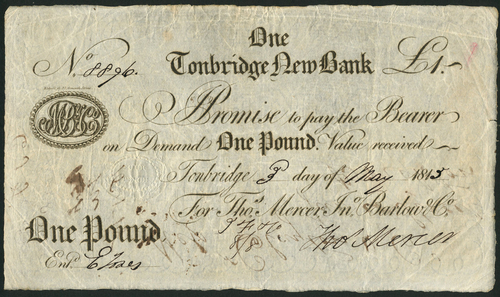 One
No. 8896. Tonbridge New Bank £1.-
Promise to pay the Bearer
on Demand One Pound Value received
Tonbridge 3 day of May 1813
For Thos. Mercer, Jno. Barlow & Co.
One Pound
Thos Mercer
Entd.